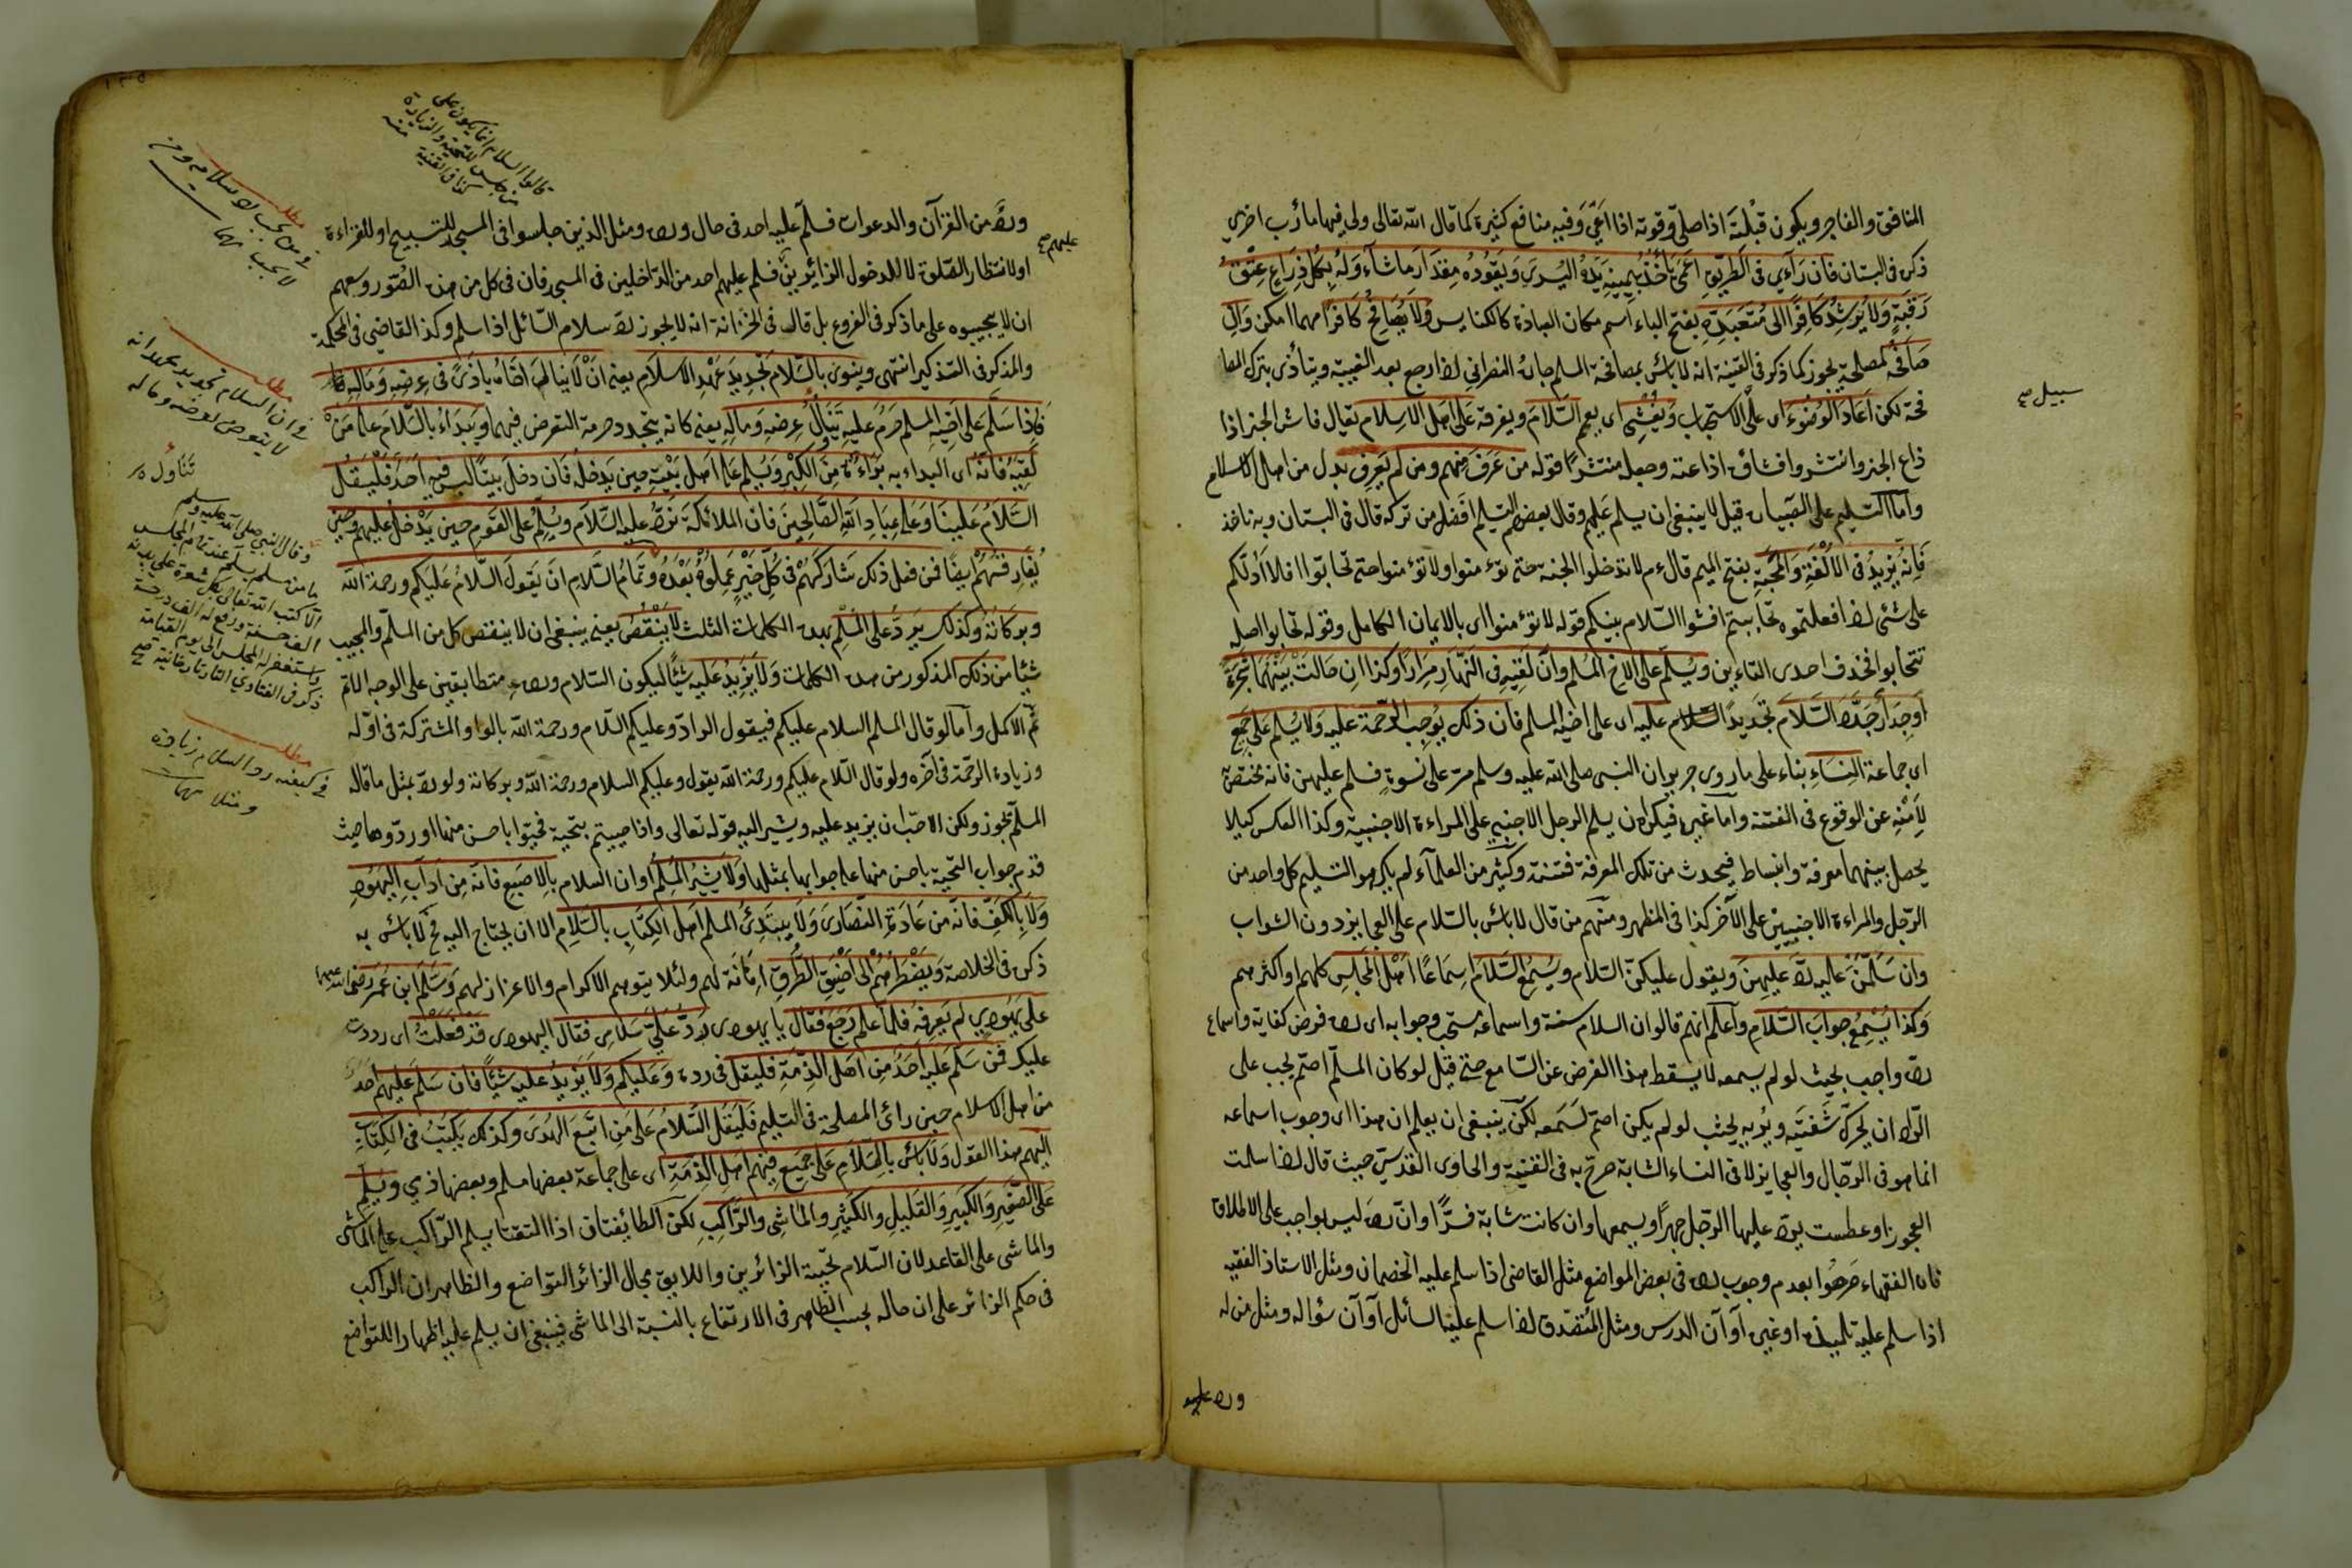 المنافق والفاجر ويكون قبلته اذا صلى وقوته اذا اعيى وفيه منافع كثيرة كما قال الله تعالى ولي فيها مآرب اخرى
ذكره في البستان فان رآى في الطريق اعمى يأخذ بيمينه يده اليسرى ويقوده مقدار ما شآء وله بكل ذراع عتق
رقبة ولا يرشد كافرا الى متعبده بفتح الباء اسم مكان العبادة كالكنايس ولا يصافح كافرا مهما امكن وان
صافحه لمصلحة يجوز كما ذكر في القنية انه لا بأس بمصافحة المسلم جاره النصراني اذا رجع بعد الغيبة ويتأذى بترك المصا
سبيل صح
فحة لكن اعاد الوضوء اى على الاستحباب ويفشى اى يعم السلام ويفرقه على اهل الاسلام يقال فاش الخبر اذا
ذاع الخبر وانتشر وافشاه اذا عته وجعله منتشرا قوله من عرف منهم ومن لم يعرف بدل من اهل الاسلام
واما التسليم على الصبيان قيل لا ينبغي ان يسلم عليهم وقال بعضهم التسليم افضل من تركه قال في البستان وبه ناخذ
فانه يزيد في الالفة والمحبة بفتح الميم قال ءم لا تدخلوا الجنة حتى تؤمنوا ولا تؤمنوا حتى تحابوا افلا ادلكم
على شئ اذا فعلتموه تحاببتم افشوا السلام بينكم قوله لا تؤمنوا اى بالايمان الكامل وقوله تحابوا اصله
تتحابوا فحذف احدى التاءين ويسلم على الاخ المسلم وان لقيه في النهار مرارا وكذا ان حالت بينهما شجرة
او جدار جدد السلام تجديد السلام عليه اى على اخيه المسلم فان ذلك يوجب الرحمة عليه ولا يسلم على جمع
اى جماعة النساء بناء على ما روى جرير ان النبى صلى الله عليه وسلم مر على نسوة فسلم عليهن فانه مختص
لامنه عن الوقوع في الفتنة واما غيره فيكره ان يسلم الرجل الاجنبي على المراءة الاجنبية وكذا العكس كيلا
يحصل بينهما معرفة وانبساط فيحدث من تلك المعرفة فتنة وكثير من العلمآء لم يكرهوا التسليم كل واحد من
الرجل والمراءة الاجنبيين على الآخر كذا في المظهر ومنهم من قال لا بأس بالسلام على العجايز دون الشواب
وان سلمن عليه رد عليهن ويقول عليكن السلام ويسمع السلام اسماعا اهل المجلس كلهم او اكثرهم
وكذا يسمع جواب السلام واعلم انهم قالوا ان السلام سنة واسماعه مستحب وجوابه اى رده فرض كفاية واسماع
رده واجب بحيث لو لم يسمعه لا يسقط هذا الفرض عن السامع حتى قيل لو كان المسلم اصم يجب على
الراد ان يحرك شفتيه ويريه بحيث لو لم يكن اصم لسمعه لكن ينبغي ان يعلم ان هذا اى وجوب اسماعه
انما هو في الرجال والعجايز لا في النساء الشابة صرح به في القنية والحاوى القدسي حيث قال اذا سلمت
العجوز او عطست يرد عليها الرجل جهرا ويسمعها وان كانت شابة سرا وان رده ليس بواجب على الاطلاق
فان الفقهاء صرحوا بعدم وجوب رده في بعض المواضع مثل القاضى اذا سلم عليه الخصمان ومثل الاستاذ الفقيه
اذا سلم عليه تلميذه او غيره آوآن الدرس ومثل المتصدق اذا سلم عليه السائل آوآن سؤاله ومثل من له
ورد
قالوا السلام انما يكون على
من جلس للتحية والزيارة
كذا في القنية منه
ورد من القرآن والدعوات فسلم عليه احد في حال ورده ومثل الذين جلسوا في المسجد للتسبيح او للقراءة
عليهم صح
او لانتظار الصلوة لا لدخول الزائرين فسلم عليهم احد من الداخلين في المسجد فان في كل من هذه الصور وسعهم
ان لا يجيبوه على ما ذكر في الفروع بل قال في الخزانة انه لا يجوز رد سلام السائل اذا سلم وكذ القاضي في المحكمة
والمذكر في التذكير انتهى وينوى بالسلام تجديد عهد الاسلام يعنى ان لا ينال اخاه باذى في عرضه وماله
فاذا سلم على اخيه المسلم حرم عليه تناول عرضه وماله يعنى كانه يتجدد حرمة التعرض فيهما ويبداء بالسلام على من
لقيه فانه اى البداء به براءة من الكبر ويسلم على اهل بيته حين يدخله فان دخل بيتا ليس فيه احد فليقل
السلام علينا وعلى عباد الله الصالحين فان الملائكة ترد عليه السلام ويسلم على القوم حين يدخل عليهم وحين
يفارقهم ايضا فمن فعل ذلك شاركهم في كل خير عملوه بعده وتمام السلام ان يقول السلام عليكم ورحمة الله
وبركاته وكذلك يرد على المسلم بهذه الكلمات الثلث لا ينقص يعنى ينبغي ان لا ينقص كل من المسلم والمجيب
شيئا من ذلك المذكور من هذه الكلمات ولا يزيد عليه شيئا ليكون السلام ورده متطابقين على الوجه الاتم
ثم الاكمل واما لو قال المسلم السلام عليكم فيقول الراد وعليكم السلام ورحمة الله بالواو المشتركة في اوله
وزيادة الرحمة في آخره ولو قال السلام عليكم ورحمة الله يقول وعليكم السلام ورحمة الله وبركاته ولو رد بمثل ما قاله
المسلم يجوز ولكن الاحب ان يزيد عليه ويشير اليه قوله تعالى واذا حييتم بتحية فحيوا باحسن منها او ردوها حيث
قدم جواب التحية باحسن منها على جوابها بمثلها ولا يشير المسلم اوان السلام بالاصبع فانه من آداب اليهود
ولا بالكف فانه من عادة النصارى ولا يبتدئ المسلم اهل الكتاب بالسلام الا ان يحتاج اليه فح لا بأس به
ذكره في الخلاصة ويضطرهم الى اضيق الطرق اهانة لهم ولئلا يتوهم الاكرام والاعزاز لهم وسلم ابن عمر رضى الله عنهما
على يهودى لم يعرفه فلما علم رجع فقال يا يهودى رد على سلامى فقال اليهودى قد فعلت اى رددت
عليك فمن سلم عليه احد من اهل الذمة فليقل في رده وعليكم ولا يزيد عليه شيئا فان سلم عليهم احد
من اهل الاسلام حين رائ المصلحة في التسليم فليقل السلام على من اتبع الهدى وكذلك يكتب في الكتاب
اليهم هذا القول ولا بأس بالسلام على جميع فيهم اهل الذمة اى على جماعة بعضها مسلم وبعضها ذمي ويسلم
على الصغير والكبير والقليل والكثير والماشى والراكب لكن الطائفتان اذا التقتا يسلم الراكب على الماشى
والماشى على القاعد لان السلام تحية الزائرين واللايق بحال الزائر التواضع والظاهر ان الراكب
في حكم الزائر على ان حاله بحسب الظاهر في الارتفاع بالنسبة الى الماشى فينبغي ان يسلم عليه اظهارا للتواضع
مطلب
لا يجب
مطلب
في ان السلام تجديد عهد انه
لا يتعرض لعرضه وماله
تناول
وقال النبي صلى الله عليه وسلم
ما من مسلم يسلم عند قيام المجلس
الا كتب الله تعالى بكل شعرة على بدنه
الف حسنة ورفع له الف درجة
واستغفر له المجلس الى يوم القيامة
ذكر في الفتاوي التاتارخانية صح
مطلب
في كيفية رد السلام زيادة
ومثلا